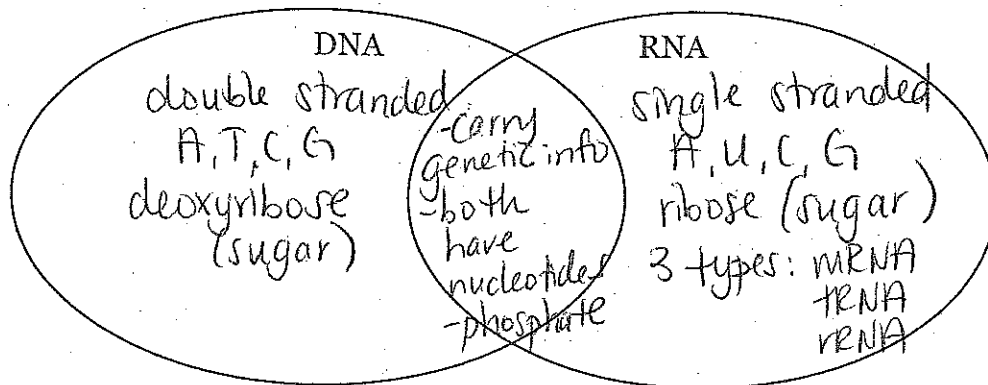 DNA
double stranded
A, T, C, G
deoxyribose
(sugar)
-carry
genetic info
-both
have
nucleotides
-phosphate
RNA
single stranded
A, U, C, G
ribose (sugar)
3 types: mRNA
tRNA
rRNA